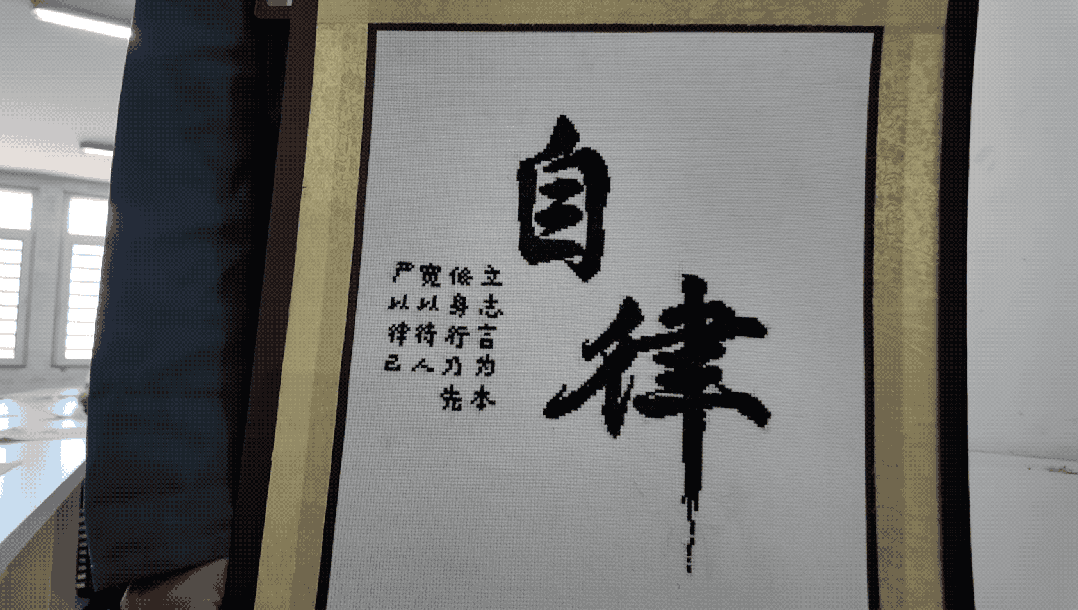 自律
立志言为本
修身行乃先
宽以待人
严以律己